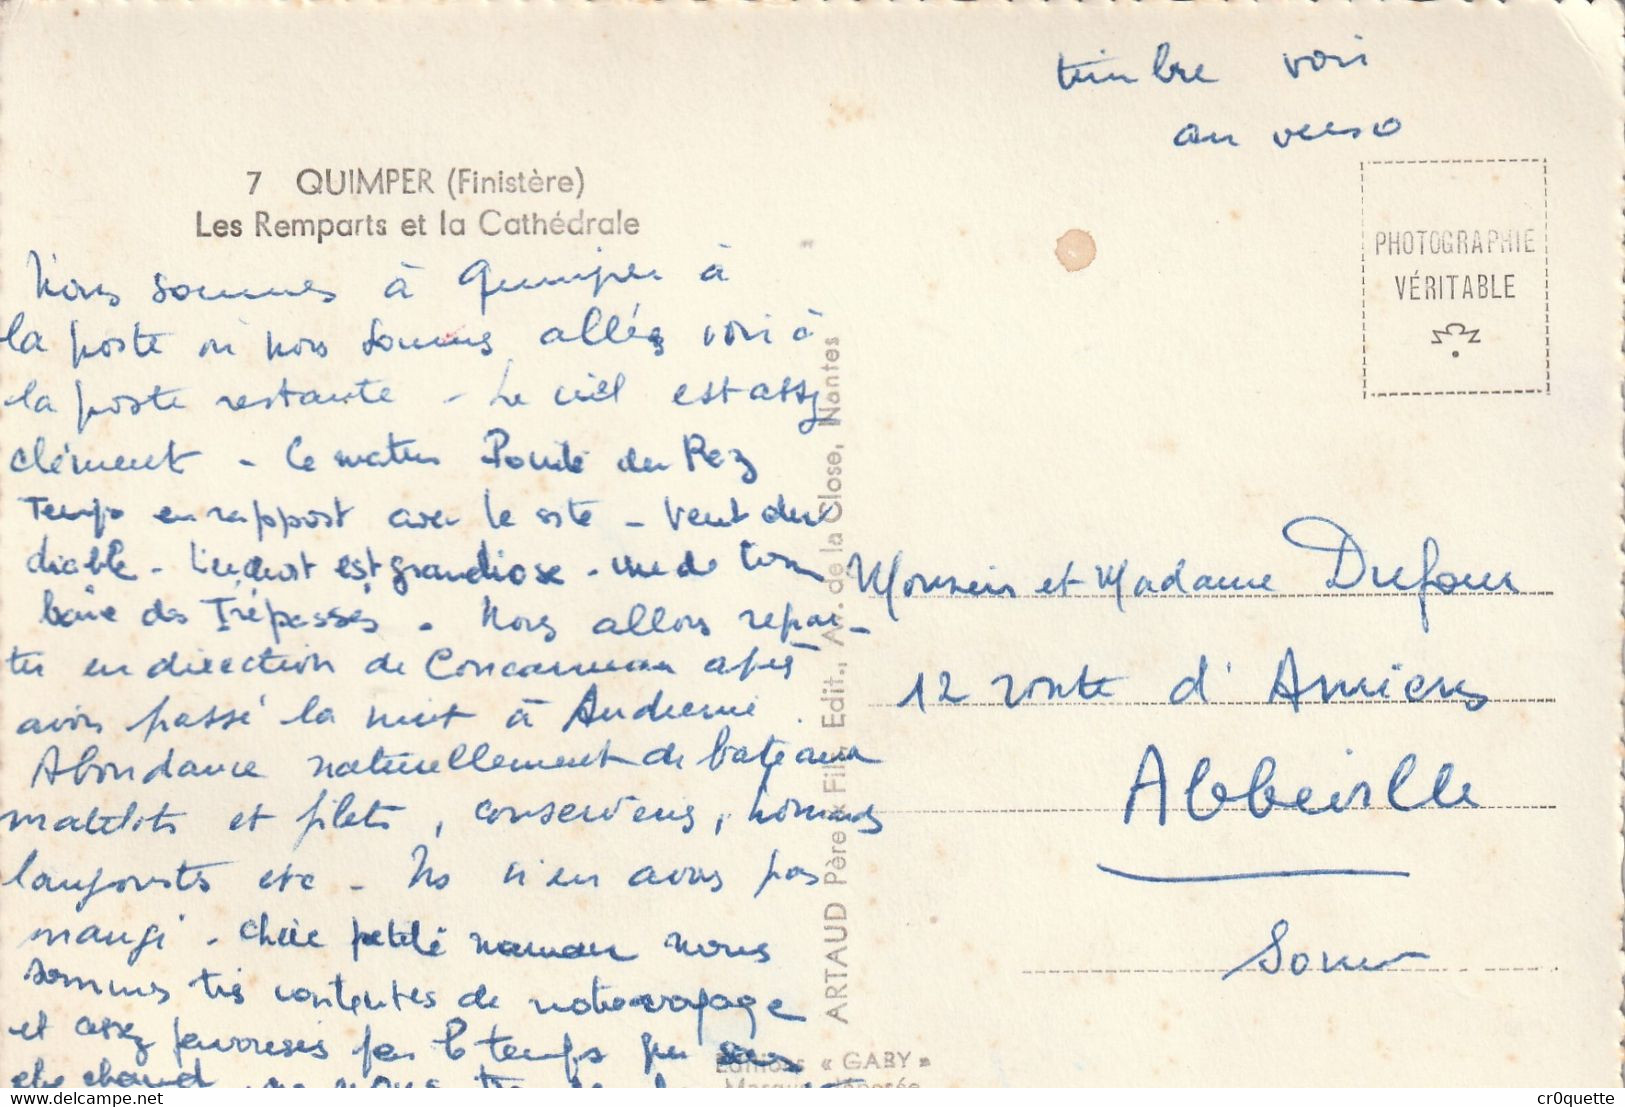 timbre voir
au verso
7 QUIMPER (Finistère)
Les Remparts et la Cathédrale
PHOTOGRAPHIE
VÉRITABLE
Nous sommes à Quimper à
la poste où nous sommes allés voir à
la poste restante - Le ciel est assez
clément - Ce matin Pointe du Raz
Temps en rapport avec le site - Vent du
diable - L'endroit est grandiose - vue de
baie des Trépassés - Nous allons repar-
tir en direction de Concarneau après
avoir passé la nuit à Audierne.
Abondance naturellement de bateaux
matelots et filets, conserveries, homards
langoustes etc - Ns n'en avons pas
mangé - Chère petite maman nous
sommes très contentes de notre voyage
et assez favorisées par le temps
Monsieur et Madame Dufour
12 route d'Amiens
Abbeville
Somme
ARTAUD Père & Fils, Edit., Av. de la Close, Nantes
Editions « GABY »
Marque déposée
cr0quette